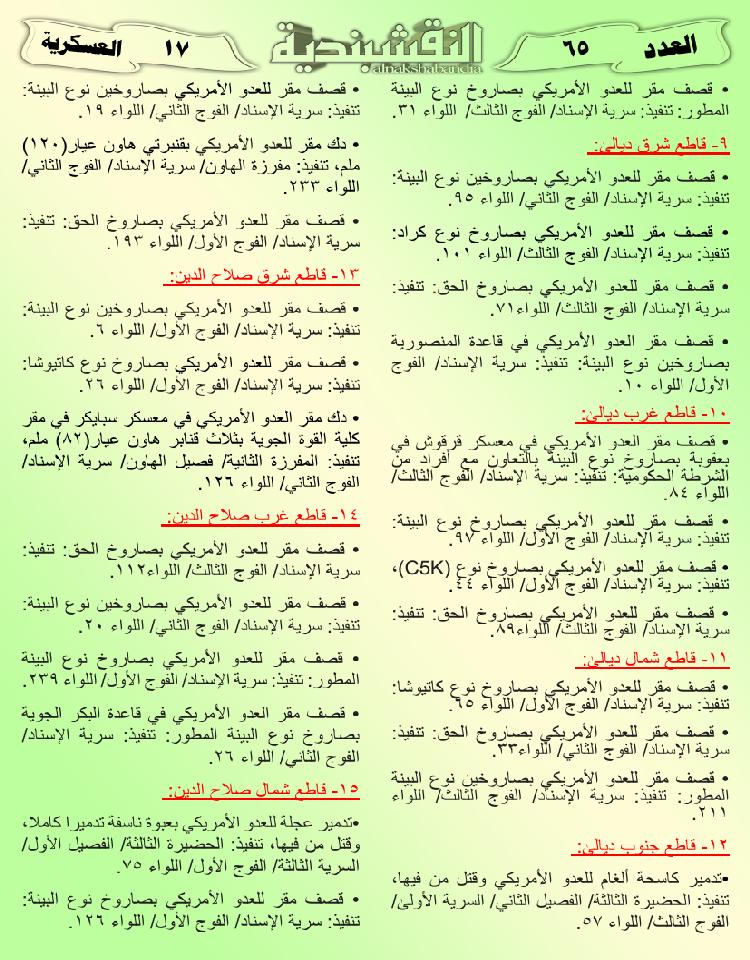 العدد ٦٥
النقشبندية
alnakshabandia
١٧ العسكرية
• قصف مقر للعدو الأمريكي بصاروخ نوع البينة
المطور: تنفيذ: سرية الإسناد/ الفوج الثالث/ اللواء ٣١.
٩- قاطع شرق ديالى:
• قصف مقر للعدو الأمريكي بصاروخين نوع البينة:
تنفيذ: سرية الإسناد/ الفوج الثاني/ اللواء ٩٥.
• قصف مقر للعدو الأمريكي بصاروخ نوع كراد:
تنفيذ: سرية الإسناد/ الفوج الثالث/ اللواء ١٠١.
• قصف مقر للعدو الأمريكي بصاروخ الحق: تنفيذ:
سرية الإسناد/ الفوج الثالث/ اللواء٧١.
• قصف مقر العدو الأمريكي في قاعدة المنصورية
بصاروخين نوع البينة: تنفيذ: سرية الإسناد/ الفوج
الأول/ اللواء ١٠.
١٠- قاطع غرب ديالى:
• قصف مقر العدو الأمريكي في معسكر قرقوش في
بعقوبة بصاروخ نوع البينة بالتعاون مع أفراد من
الشرطة الحكومية: تنفيذ: سرية الإسناد/ الفوج الثالث/
اللواء ٨٤.
• قصف مقر للعدو الأمريكي بصاروخ نوع البينة:
تنفيذ: سرية الإسناد/ الفوج الأول/ اللواء ٩٧.
• قصف مقر للعدو الأمريكي بصاروخ نوع (C5K)،
تنفيذ: سرية الإسناد/ الفوج الأول/ اللواء ٤٤.
• قصف مقر للعدو الأمريكي بصاروخ الحق: تنفيذ:
سرية الإسناد/ الفوج الثالث/ اللواء٨٩.
١١- قاطع شمال ديالى:
• قصف مقر للعدو الأمريكي بصاروخ نوع كاتيوشا:
تنفيذ: سرية الإسناد/ الفوج الأول/ اللواء ٦٥.
• قصف مقر للعدو الأمريكي بصاروخ الحق: تنفيذ:
سرية الإسناد/ الفوج الثاني/ اللواء٣٣.
• قصف مقر للعدو الأمريكي بصاروخين نوع البينة
المطور: تنفيذ: سرية الإسناد/ الفوج الثالث/ اللواء
٢١١.
١٢- قاطع جنوب ديالى:
•تدمير كاسحة ألغام للعدو الأمريكي وقتل من فيها،
تنفيذ: الحضيرة الثالثة/ الفصيل الثاني/ السرية الأولى/
الفوج الثالث/ اللواء ٥٧.
• قصف مقر للعدو الأمريكي بصاروخين نوع البينة:
تنفيذ: سرية الإسناد/ الفوج الثاني/ اللواء ١٩.
• دك مقر للعدو الأمريكي بقنبرتي هاون عيار(١٢٠)
ملم، تنفيذ: مفرزة الهاون/ سرية الإسناد/ الفوج الثاني/
اللواء ٢٣٣.
• قصف مقر للعدو الأمريكي بصاروخ الحق: تنفيذ:
سرية الإسناد/ الفوج الأول/ اللواء ١٩٣.
١٣- قاطع شرق صلاح الدين:
• قصف مقر للعدو الأمريكي بصاروخين نوع البينة:
تنفيذ: سرية الإسناد/ الفوج الأول/ اللواء ٦.
• قصف مقر للعدو الأمريكي بصاروخ نوع كاتيوشا:
تنفيذ: سرية الإسناد/ الفوج الأول/ اللواء ٢٦.
• دك مقر العدو الأمريكي في معسكر سبايكر في مقر
كلية القوة الجوية بثلاث قنابر هاون عيار(٨٢) ملم،
تنفيذ: المفرزة الثانية/ فصيل الهاون/ سرية الإسناد/
الفوج الثاني/ اللواء ١٢٦.
١٤- قاطع غرب صلاح الدين:
• قصف مقر للعدو الأمريكي بصاروخ الحق: تنفيذ:
سرية الإسناد/ الفوج الثالث/ اللواء١١٢.
• قصف مقر للعدو الأمريكي بصاروخين نوع البينة:
تنفيذ: سرية الإسناد/ الفوج الثاني/ اللواء ٢٠.
• قصف مقر للعدو الأمريكي بصاروخ نوع البينة
المطور: تنفيذ: سرية الإسناد/ الفوج الأول/ اللواء ٢٣٩.
• قصف مقر العدو الأمريكي في قاعدة البكر الجوية
بصاروخ نوع البينة المطور: تنفيذ: سرية الإسناد/
الفوج الثاني/ اللواء ٢٦.
١٥- قاطع شمال صلاح الدين:
•تدمير عجلة للعدو الأمريكي بعبوة ناسفة تدميرا كاملا،
وقتل من فيها، تنفيذ: الحضيرة الثالثة/ الفصيل الأول/
السرية الثالثة/ الفوج الأول/ اللواء ٧٥.
• قصف مقر للعدو الأمريكي بصاروخين نوع البينة:
تنفيذ: سرية الإسناد/ الفوج الأول/ اللواء ١٢٦.